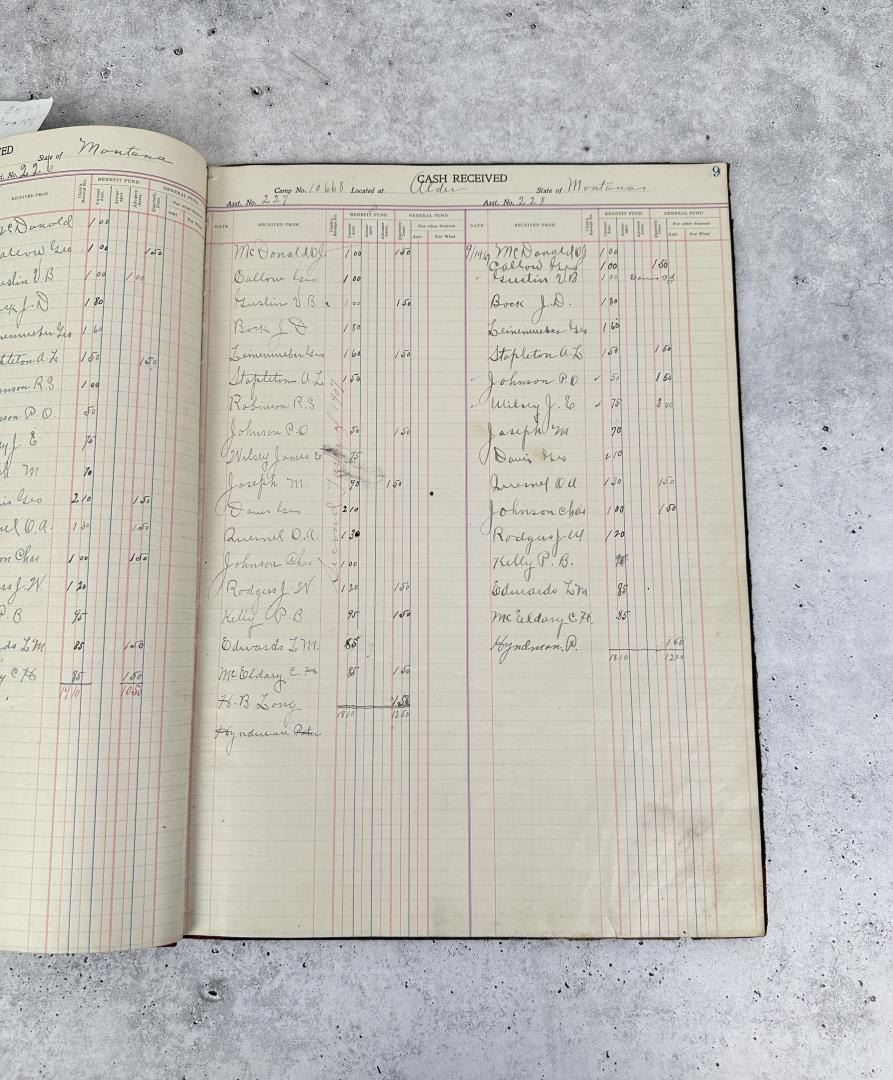 VED
State of Montana
t. No. 226
BENEFIT FUND
GENERAL FUND
RECEIVED FROM
For other Sources
Amt.
McDonald 1 00
Callow Geo 1 00 1 50
Gustin V.B 1 00 1 00
ck J.D 1 80
enenweber Geo 1 60
pleton A.L 1 50 1 50
nson R.S. 1 00
nson P.O. 50
y J. E 75
h M 70
is Geo 2 10 1 50
nel O.A. 1 30 1 50
on Chas 1 00 1 50
ers J.W 1 20
P.B 95
ards L.M 85 1 50
y C H 85 1 50
19 10 10 50
CASH RECEIVED
9
Camp No. 10668 Located at Alder State of Montana
Asst. No. 227
DATE
RECEIVED FROM
Clerk's Receipt No.
BENEFIT FUND
GENERAL FUND
Current Asst.
Arrearages
Advance Assts.
Quarterly Dues
For other Sources
Amt.
For What
McDonald D J 1 00 1 50
Callow Geo 1 00
Gustin V. B x 1 00 1 50
Bock J. D. 1 80
Leinenweber Geo 1 60 1 50
Stapleton A L 1 50
Robinson R.S
Johnson P.O 50 1 50
Wilsey James E 75
Joseph M. 90 1 50
Davis Geo 2 10
Quesnel O.A. 1 30
Johnson Chas 1 00
Rodgers J. W. 1 20 1 50
Kelly P. B 95 1 50
Edwards L. M. 85
McEldary C. H 85 1 50
H. B Long 1 50
18 10 13 50
Hyndman Peter
Asst. No. 228
DATE
RECEIVED FROM
Clerk's Receipt No.
BENEFIT FUND
GENERAL FUND
Current Asst.
Arrearages
Advance Assts.
Quarterly Dues
For other Sources
Amt.
For What
McDonald D J 1 00
Callow Geo 1 00 1 50
Gustin V. B. 1 00
Bock J. D. 1 80
Leinenweber Geo 1 60
Stapleton A. L 1 50 1 50
Johnson P.O 50 1 50
Wilsey J. E 75 2 00
Joseph M 70
Davis Geo 2 10
Quesnel O A 1 30 1 50
Johnson Chas 1 00 1 50
Rodgers J W 1 20
Kelly P. B. 95
Edwards L. M 85
McEldary C. H. 85
Hyndman, P. 1 50
18 10 12 00